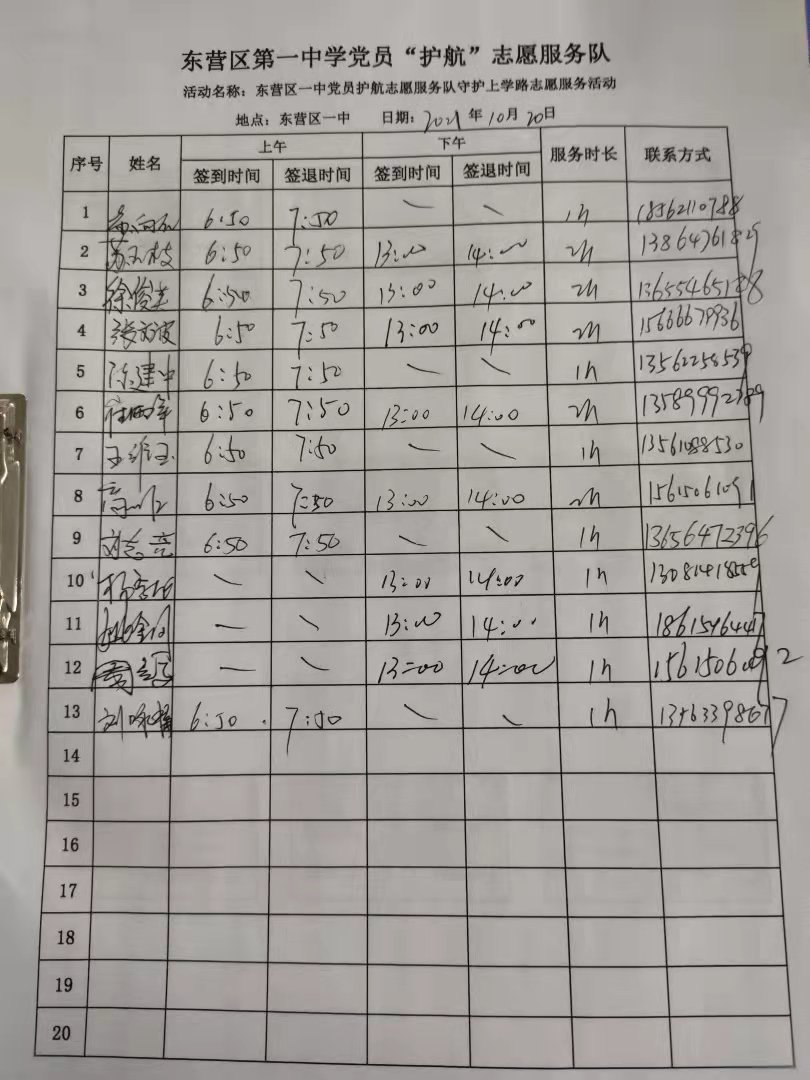 东营区第一中学党员“护航”志愿服务队
活动名称：东营区一中党员护航志愿服务队守护上学路志愿服务活动
地点：东营区一中 日期：2021年10月20日
序号 姓名 上午 下午 服务时长 联系方式
签到时间 签退时间 签到时间 签退时间
1 6:50 7:50 — — 1h 18562110788
2 苏玉枝 6:50 7:50 13:00 14:00 2h 13864761829
3 徐俊芝 6:50 7:50 13:00 14:00 2h 13655465188
4 6:50 7:50 13:00 14:00 2h 15666679936
5 陈建中 6:50 7:50 — — 1h 13562258539
6 6:50 7:50 13:00 14:00 2h 13589992789
7 王维玉 6:50 7:50 — — 1h
8 6:50 7:50 13:00 14:00 2h 15615061091
9 刘志亮 6:50 7:50 — — 1h 13656472396
10 — — 13:00 14:00 1h
11 — — 13:00 14:00 1h
12 — — 13:00 14:00 1h
13 6:50 7:50 — — 1h
14
15
16
17
18
19
20